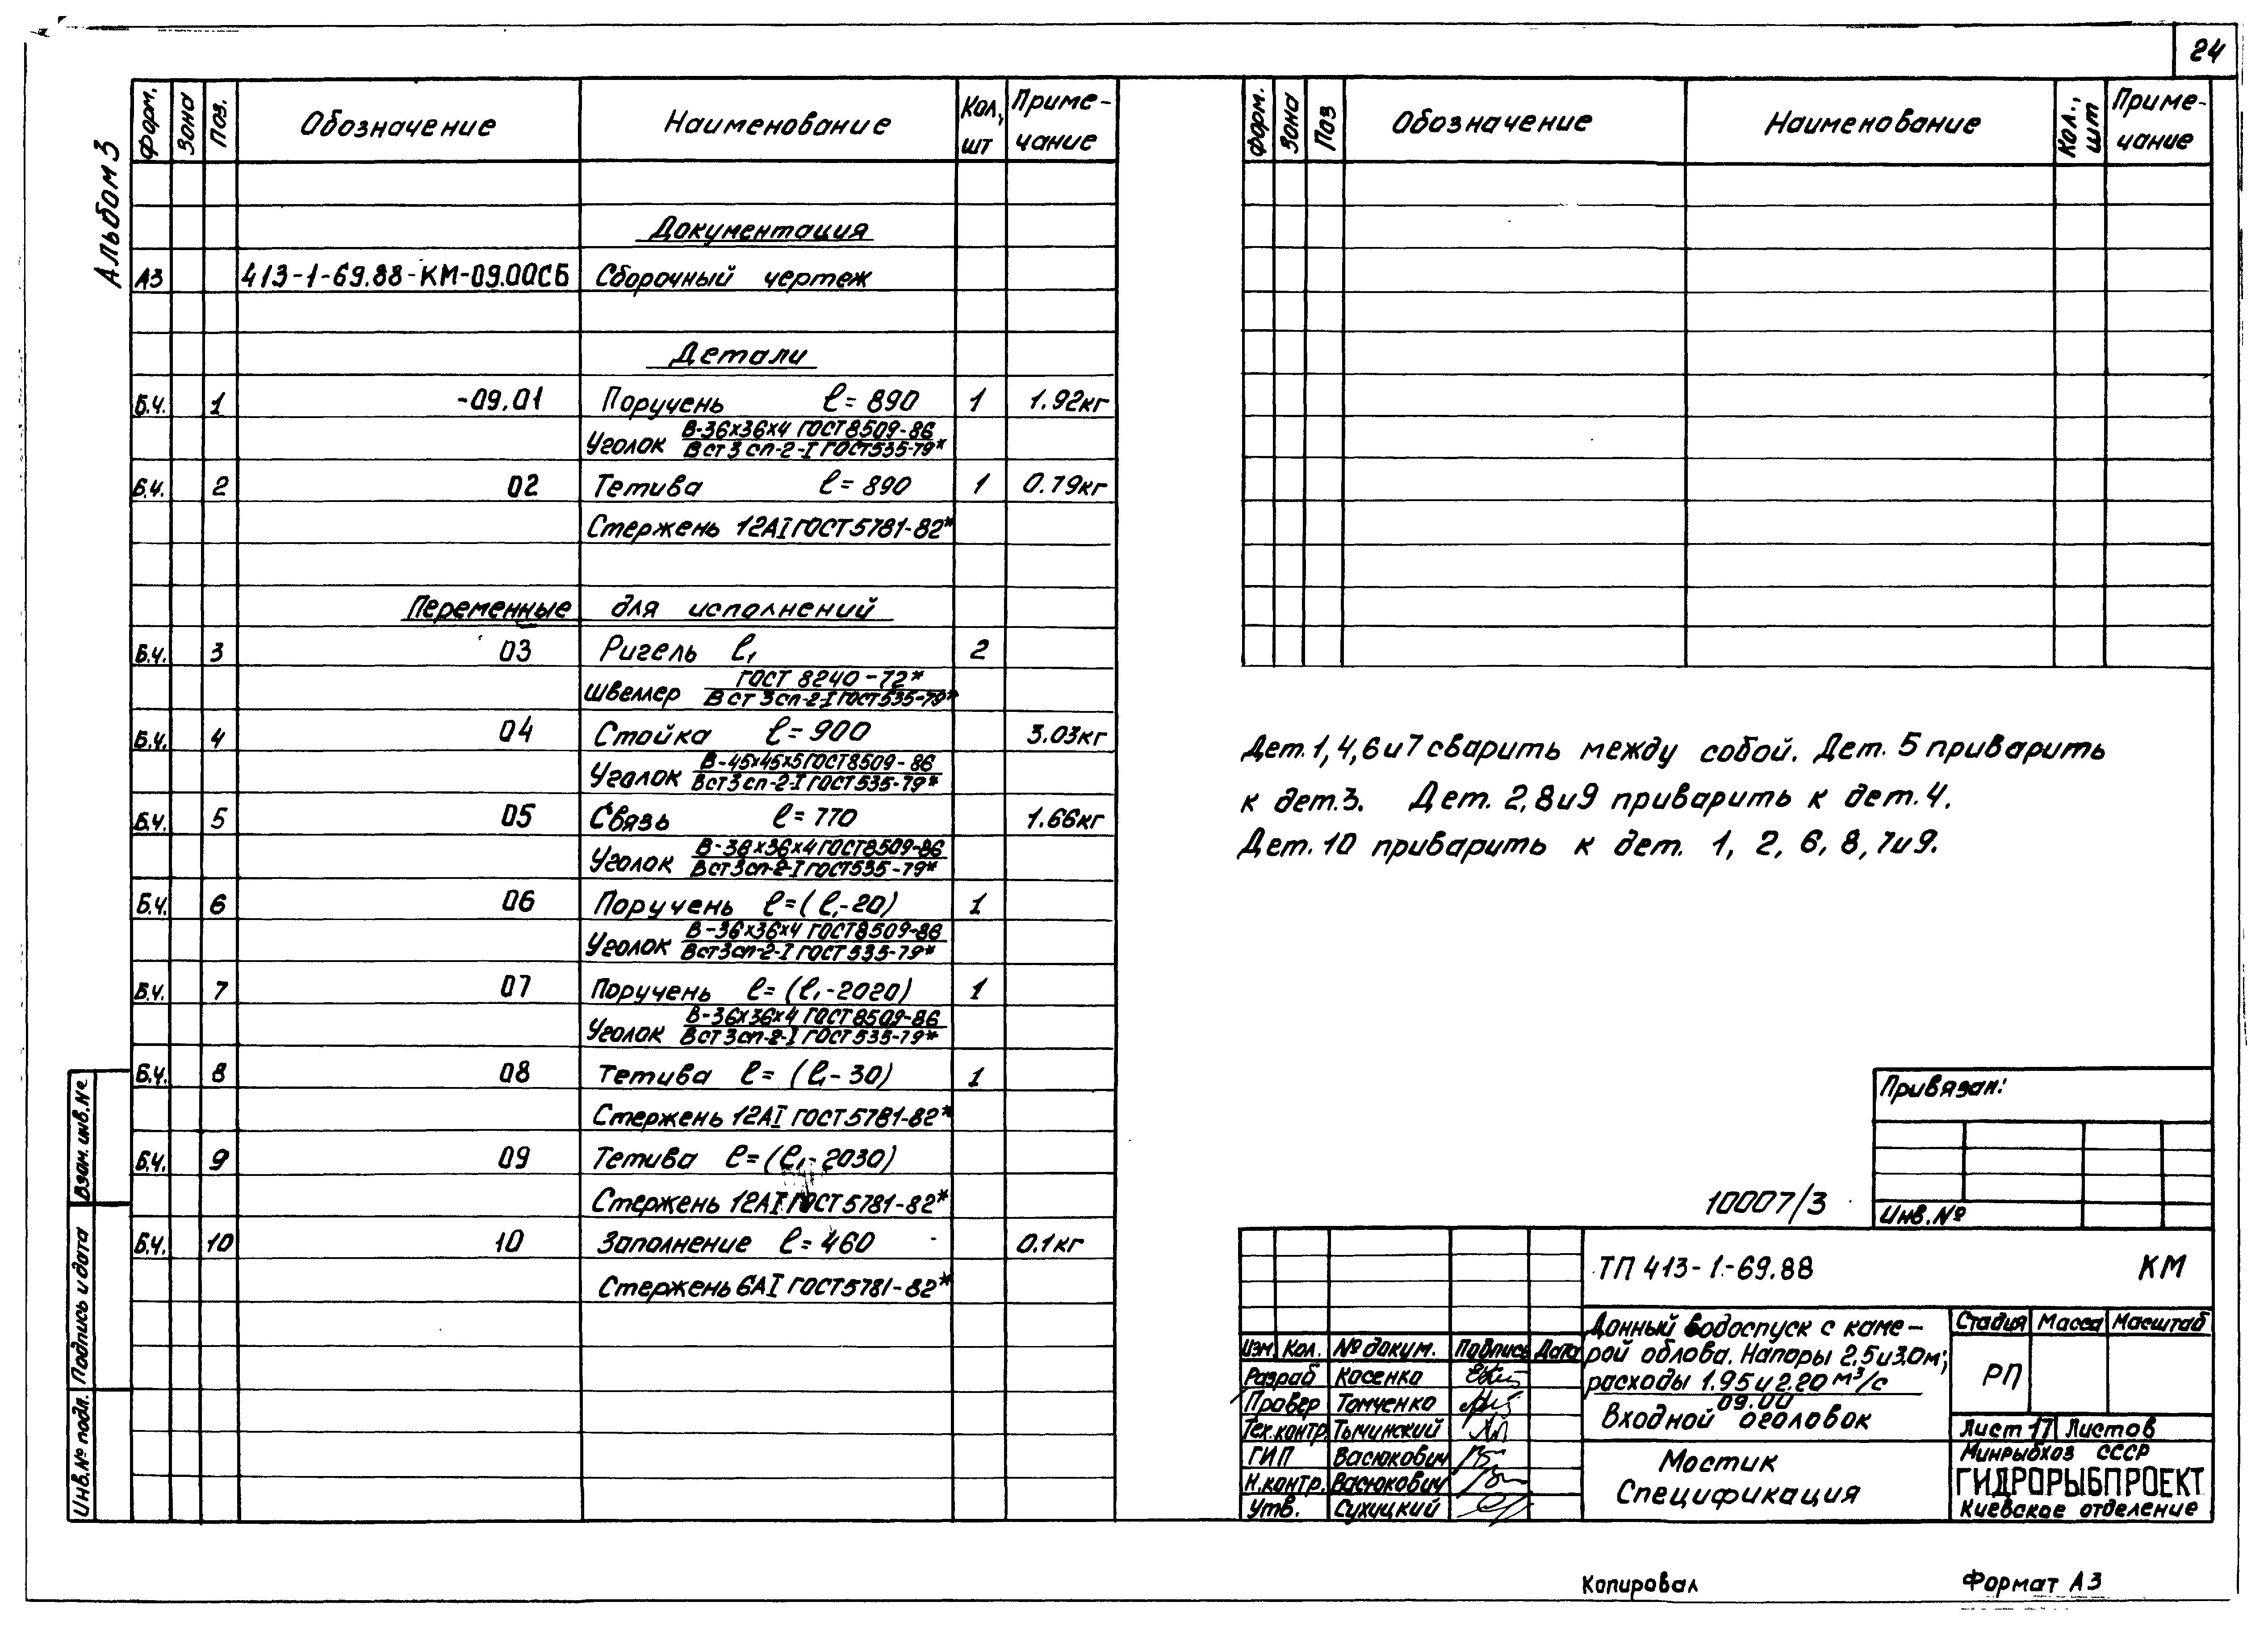 24
Альбом 3
Форм. Зона Поз. Обозначение Наименование Кол, шт Приме-чание
Документация
А3 413-1-69.88-КМ-09.00СБ Сборочный чертеж
Детали
Б.Ч. 1 -09.01 Поручень ℓ=890 1 1.92кг
Уголок В-36х36х4 ГОСТ 8509-86
Вст3сп-2-I ГОСТ 535-79*
Б.Ч. 2 02 Тетива ℓ=890 1 0.79кг
Стержень 12АI ГОСТ 5781-82*
Переменные для исполнений
Б.Ч. 3 03 Ригель ℓ₁ 2
Швеллер ГОСТ 8240-72*
Вст3сп-2-I ГОСТ 535-79*
Б.Ч. 4 04 Стойка ℓ=900 3.03кг
Уголок В-45х45х5 ГОСТ 8509-86
Вст3сп-2-I ГОСТ 535-79*
Б.Ч. 5 05 Связь ℓ=770 1.66кг
Уголок В-36х36х4 ГОСТ 8509-86
Вст3сп-2-I ГОСТ 535-79*
Б.Ч. 6 06 Поручень ℓ=(ℓ₁-20) 1
Уголок В-36х36х4 ГОСТ 8509-86
Вст3сп-2-I ГОСТ 535-79*
Б.Ч. 7 07 Поручень ℓ=(ℓ₁-2020) 1
Уголок В-36х36х4 ГОСТ 8509-86
Вст3сп-2-I ГОСТ 535-79*
Б.Ч. 8 08 Тетива ℓ=(ℓ₁-30) 1
Стержень 12АI ГОСТ 5781-82*
Б.Ч. 9 09 Тетива ℓ=(ℓ₁-2030)
Стержень 12АI ГОСТ 5781-82*
Б.Ч. 10 10 Заполнение ℓ=460 0.1кг
Стержень 6АI ГОСТ 5781-82*
Взам. инв. №
Подпись и дата
Инв. № подл.
Форм. Зона Поз Обозначение Наименование Кол., шт Приме-чание
Дет. 1, 4, 6 и 7 сварить между собой. Дет. 5 приварить
к дет. 3. Дет. 2, 8 и 9 приварить к дет. 4.
Дет. 10 приварить к дет. 1, 2, 6, 8, 7 и 9.
Привязан:
Инв. №
10007/3
ТП 413-1-69.88 КМ
Изм Кол. № докум. Подпись Дата
Разраб Косенко
Провер Томченко
Тех.контр. Тыминский
ГИП Васюкович
Н.контр. Васюкович
Утв. Сухицкий
Донный водоспуск с каме-
рой облова. Напоры 2.5 и 3.0м;
расходы 1.95 и 2.20 м³/с
09.00
Входной оголовок
Мостик
Спецификация
Стадия Масса Масштаб
РП
Лист 17 Листов
Минрыбхоз СССР
ГИДРОРЫБПРОЕКТ
Киевское отделение
Копировал Формат А3